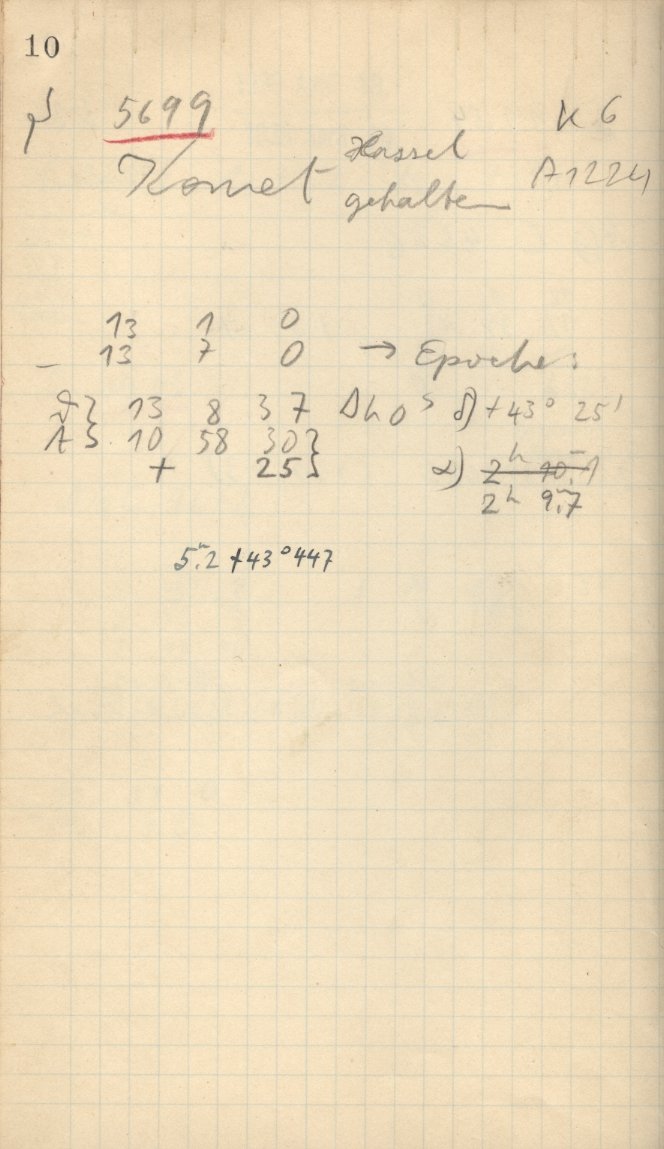 10
5699 K 6
Komet Hassel A1224
gehalten
13 1 0
– 13 7 0 → Epoche:
13 8 37 Δh 0ˢ δ) +43° 25'
10 58 30
+ 25 α) 2ʰ 10.ᵐ1
2ʰ 9.ᵐ7
5.ᵐ2 +43°447